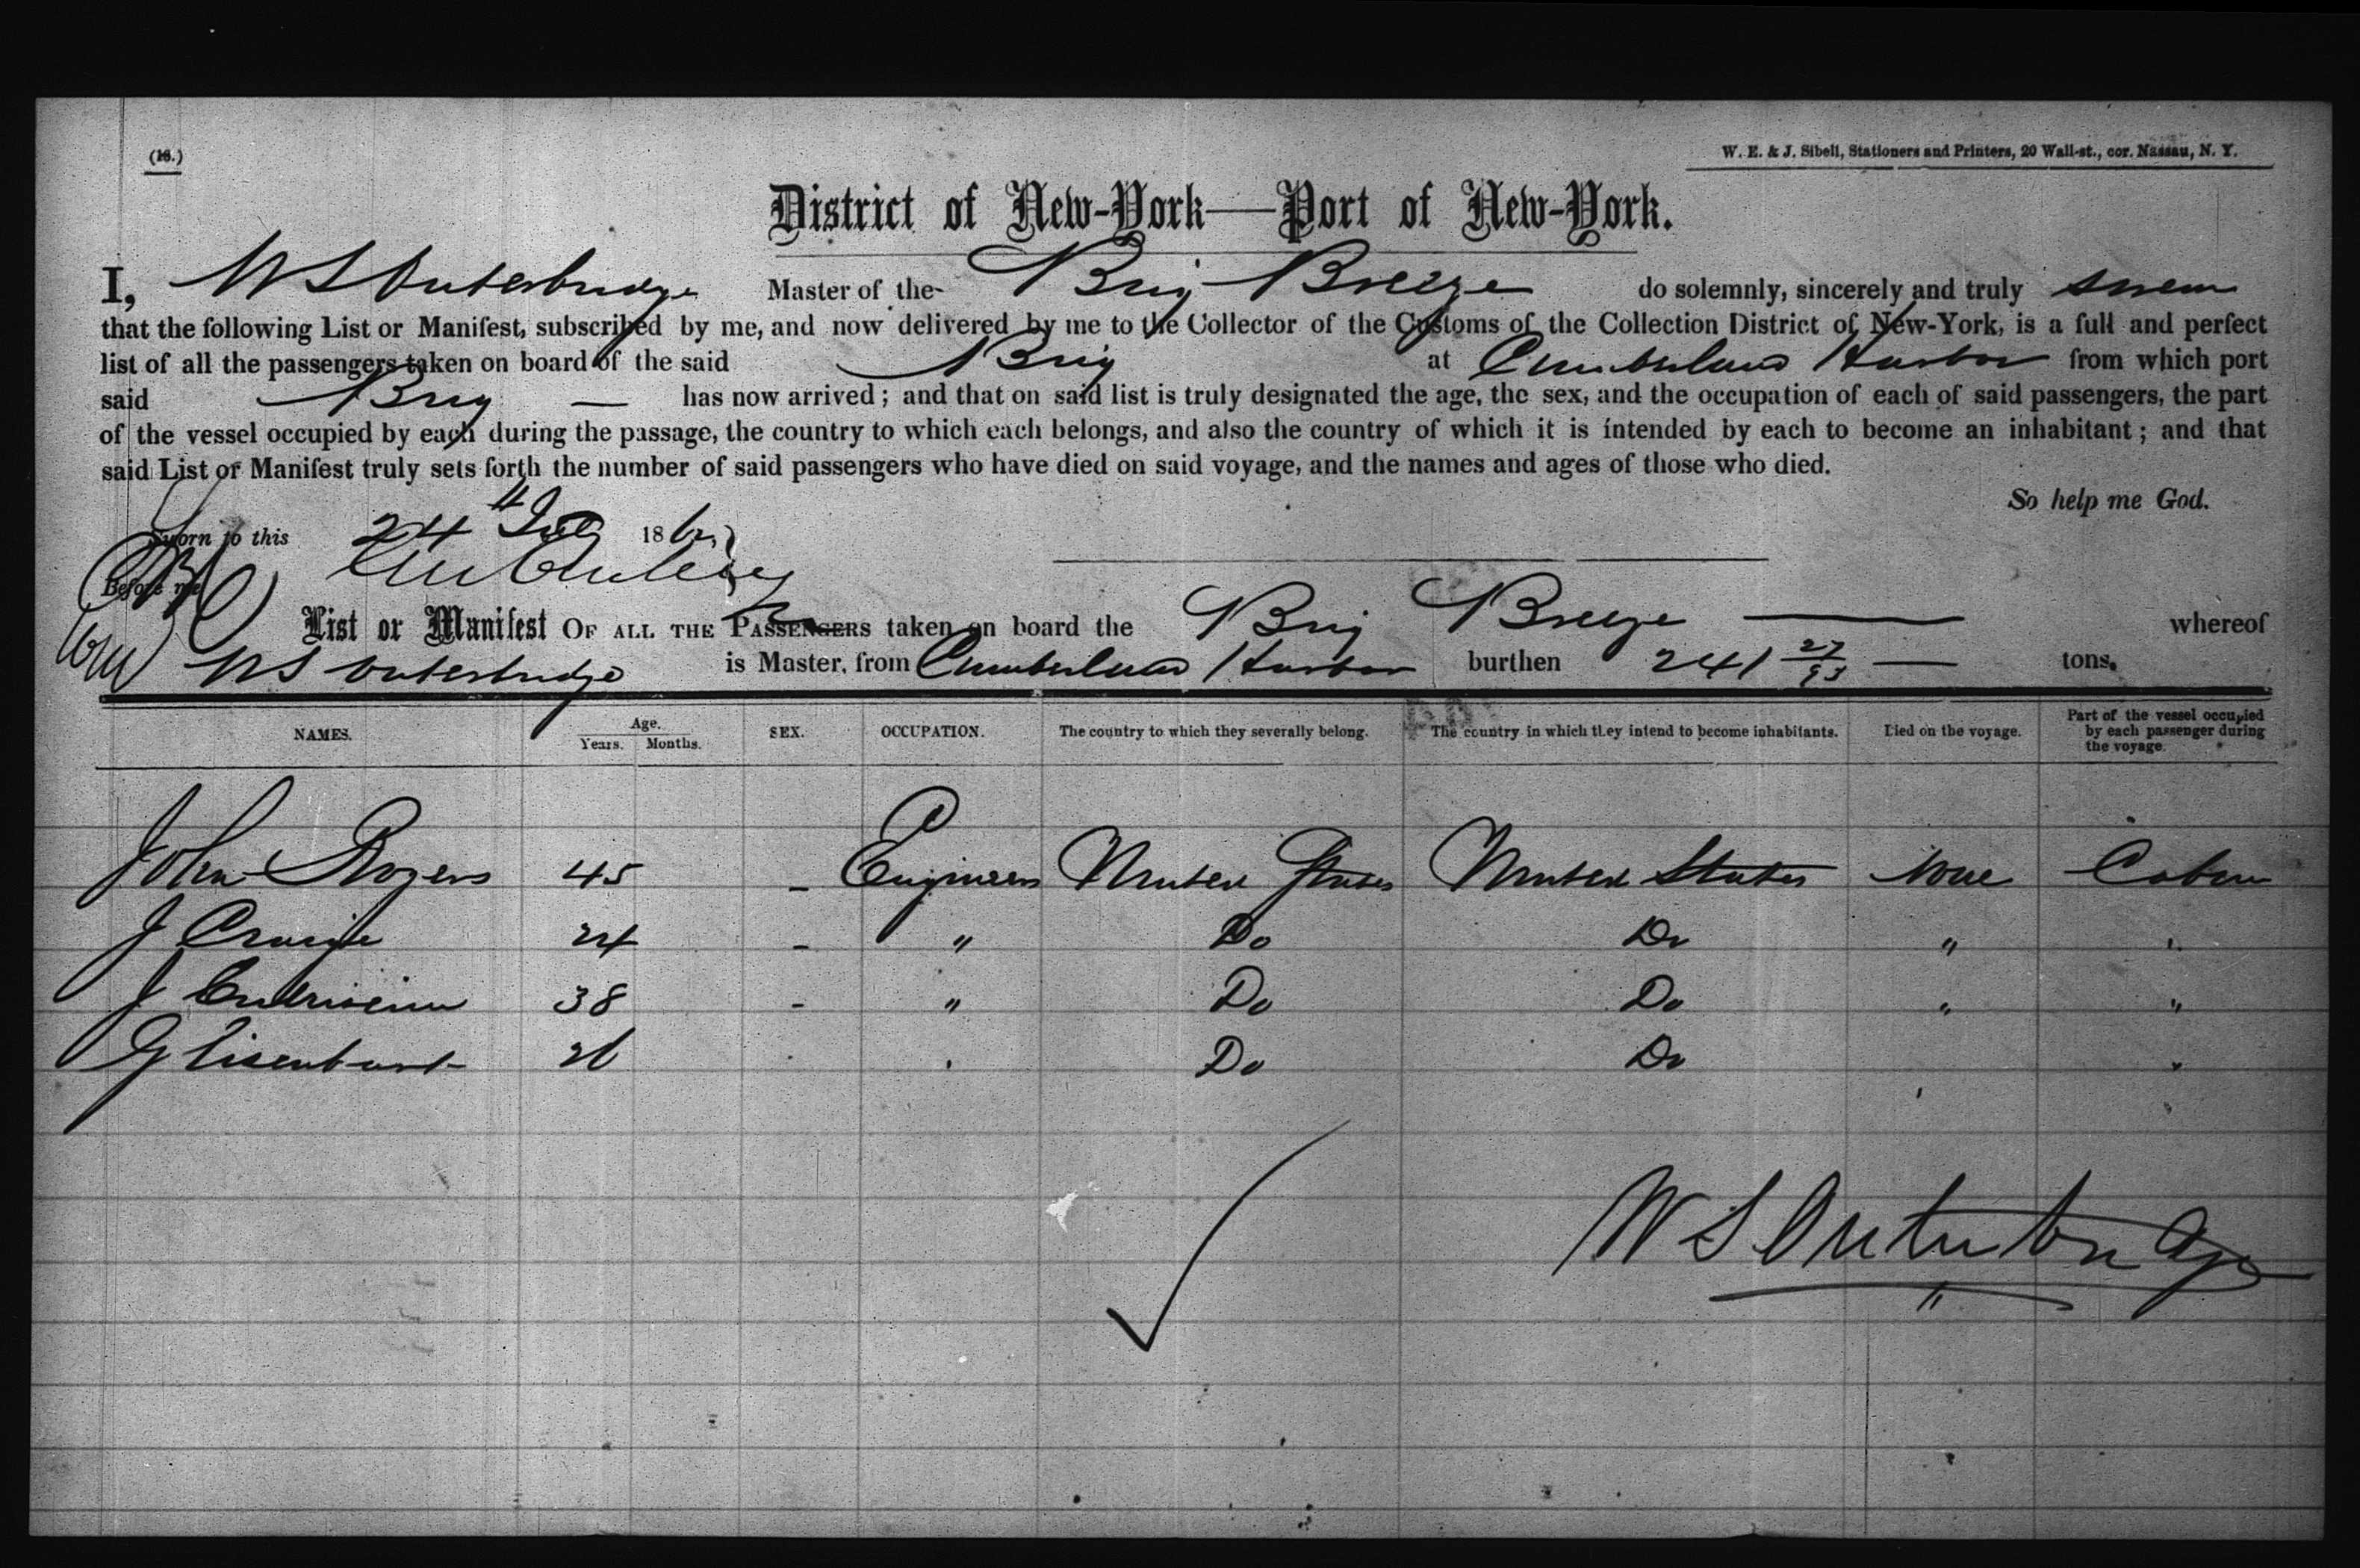 (16.)
W. E. & J. Sibell, Stationers and Printers, 20 Wall-st., cor. Nassau, N. Y.
District of New-York—Port of New-York.
I, W S Outerbridge Master of the Brig Breeze do solemnly, sincerely and truly swear
that the following List or Manifest, subscribed by me, and now delivered by me to the Collector of the Customs of the Collection District of New-York, is a full and perfect
list of all the passengers taken on board of the said Brig at Cumberland Harbor from which port
said Brig — has now arrived; and that on said list is truly designated the age, the sex, and the occupation of each of said passengers, the part
of the vessel occupied by each during the passage, the country to which each belongs, and also the country of which it is intended by each to become an inhabitant; and that
said List or Manifest truly sets forth the number of said passengers who have died on said voyage, and the names and ages of those who died.
So help me God.
Sworn to this 24th 186
Before me
List or Manifest OF ALL THE PASSENGERS taken on board the Brig Breeze — whereof
W S Outerbridge is Master, from Cumberland Harbor burthen 241 27/95 — tons.
NAMES. Age. Years. Months. SEX. OCCUPATION. The country to which they severally belong. The country in which they intend to become inhabitants. Died on the voyage. Part of the vessel occupied by each passenger during the voyage.
John Rogers 45 - Engineers United States United States None Cabin
J Craige 24 - " Do Do " "
J 38 - " Do Do " "
G 26 Do Do
W S Outerbridge